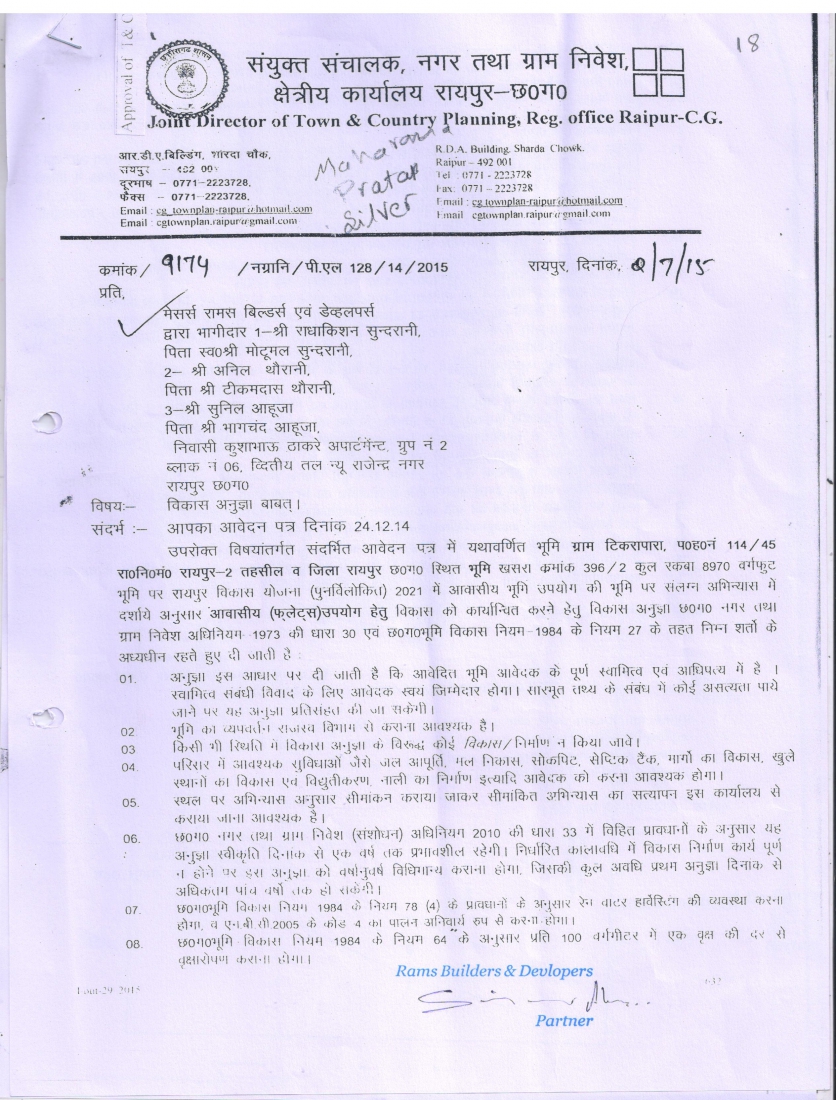 18
Approval of T & C
संयुक्त संचालक, नगर तथा ग्राम निवेश,
क्षेत्रीय कार्यालय रायपुर–छ0ग0
Joint Director of Town & Country Planning, Reg. office Raipur-C.G.
आर.डी.ए.बिल्डिंग, शारदा चौक,
रायपुर – 492 001
दूरभाष – 0771–2223728,
फैक्स – 0771–2223728,
Email : cg_townplan-raipur@hotmail.com
Email : cgtownplan.raipur@gmail.com
Maharana
Pratap
Silver
R.D.A. Building, Sharda Chowk,
Raipur – 492 001
Tel : 0771 - 2223728
Fax: 0771 – 2223728
Email : cg_townplan-raipur@hotmail.com
Email cgtownplan.raipur@gmail.com
कमांक / 9174 /नग्रानि/पी.एल 128/14/2015 रायपुर, दिनांक, 2/7/15
प्रति,
मेसर्स रामस बिल्डर्स एवं डेव्हलपर्स
द्वारा भागीदार 1–श्री राधाकिशन सुन्दरानी,
पिता स्व0श्री मोटूमल सुन्दरानी,
2– श्री अनिल थौरानी,
पिता श्री टीकमदास थौरानी,
3–श्री सुनिल आहूजा
पिता श्री भागचंद आहूजा,
निवासी कुशाभाऊ ठाकरे अपार्टमेंन्ट, ग्रुप नं 2
ब्लाक नं 06, व्दितीय तल न्यू राजेन्द्र नगर
रायपुर छ0ग0
विषयः– विकास अनुज्ञा बाबत्।
संदर्भ :– आपका आवेदन पत्र दिनांक 24.12.14
उपरोक्त विषयांतर्गत संदर्भित आवेदन पत्र में यथावर्णित भूमि ग्राम टिकरापारा, प0ह0नं 114/45
रा0नि0मं0 रायपुर–2 तहसील व जिला रायपुर छ0ग0 स्थित भूमि खसरा कमांक 396/2 कुल रकबा 8970 वर्गफुट
भूमि पर रायपुर विकास योजना (पुनर्विलोकित) 2021 में आवासीय भूमि उपयोग की भूमि पर संलग्न अभिन्यास में
दर्शाये अनुसार आवासीय (फ्लेट्स)उपयोग हेतु विकास को कार्यान्वित करने हेतु विकास अनुज्ञा छ0ग0 नगर तथा
ग्राम निवेश अधिनियम–1973 की धारा 30 एवं छ0ग0भूमि विकास नियम–1984 के नियम 27 के तहत निम्न शर्तो के
अध्यधीन रहते हुए दी जाती है :
01. अनुज्ञा इस आधार पर दी जाती है कि आवेदित भूमि आवेदक के पूर्ण स्वामित्व एवं आधिपत्य में है ।
स्वामित्व संबंधी विवाद के लिए आवेदक स्वयं जिम्मेदार होगा। सारभूत तथ्य के संबंध में कोई असत्यता पाये
जाने पर यह अनुज्ञा प्रतिसंहृत की जा सकेगी।
02. भूमि का व्यपवर्तन राजस्व विभाग से कराना आवश्यक है।
03 किसी भी स्थिति में विकास अनुज्ञा के विरूद्ध कोई विकास/निर्माण न किया जावे।
04. परिसर में आवश्यक सुविधाओं जैसे जल आपूर्ति, मल निकास, सोकपिट, सेप्टिक टैंक, मार्गो का विकास, खुले
स्थानों का विकास एवं विद्युतीकरण, नाली का निर्माण इत्यादि आवेदक को करना आवश्यक होगा।
05. स्थल पर अभिन्यास अनुसार सीमांकन कराया जाकर सीमांकित अभिन्यास का सत्यापन इस कार्यालय से
कराया जाना आवश्यक है।
06. छ0ग0 नगर तथा ग्राम निवेश (संशोधन) अधिनियम 2010 की धारा 33 में विहित प्रावधानों के अनुसार यह
अनुज्ञा स्वीकृति दिनांक से एक वर्ष तक प्रभावशील रहेगी। निर्धारित कालावधि में विकास निर्माण कार्य पूर्ण
न होने पर इस अनुज्ञा को वर्षानुवर्ष विधिमान्य कराना होगा, जिसकी कुल अवधि प्रथम अनुज्ञा दिनांक से
अधिकतम पांच वर्षो तक हो सकेगी।
07. छ0ग0भूमि विकास नियम 1984 के नियम 78 (4) के प्रावधानों के अनुसार रेन वाटर हार्वेस्टिंग की व्यवस्था करना
होगा, व एन.बी.सी.2005 के कोड 4 का पालन अनिवार्य रुप से करना होगा।
08. छ0ग0भूमि विकास नियम 1984 के नियम 64 के अनुसार प्रति 100 वर्गमीटर में एक वृक्ष की दर से
वृक्षारोपण कराना होगा।
Rams Builders & Devlopers
Partner